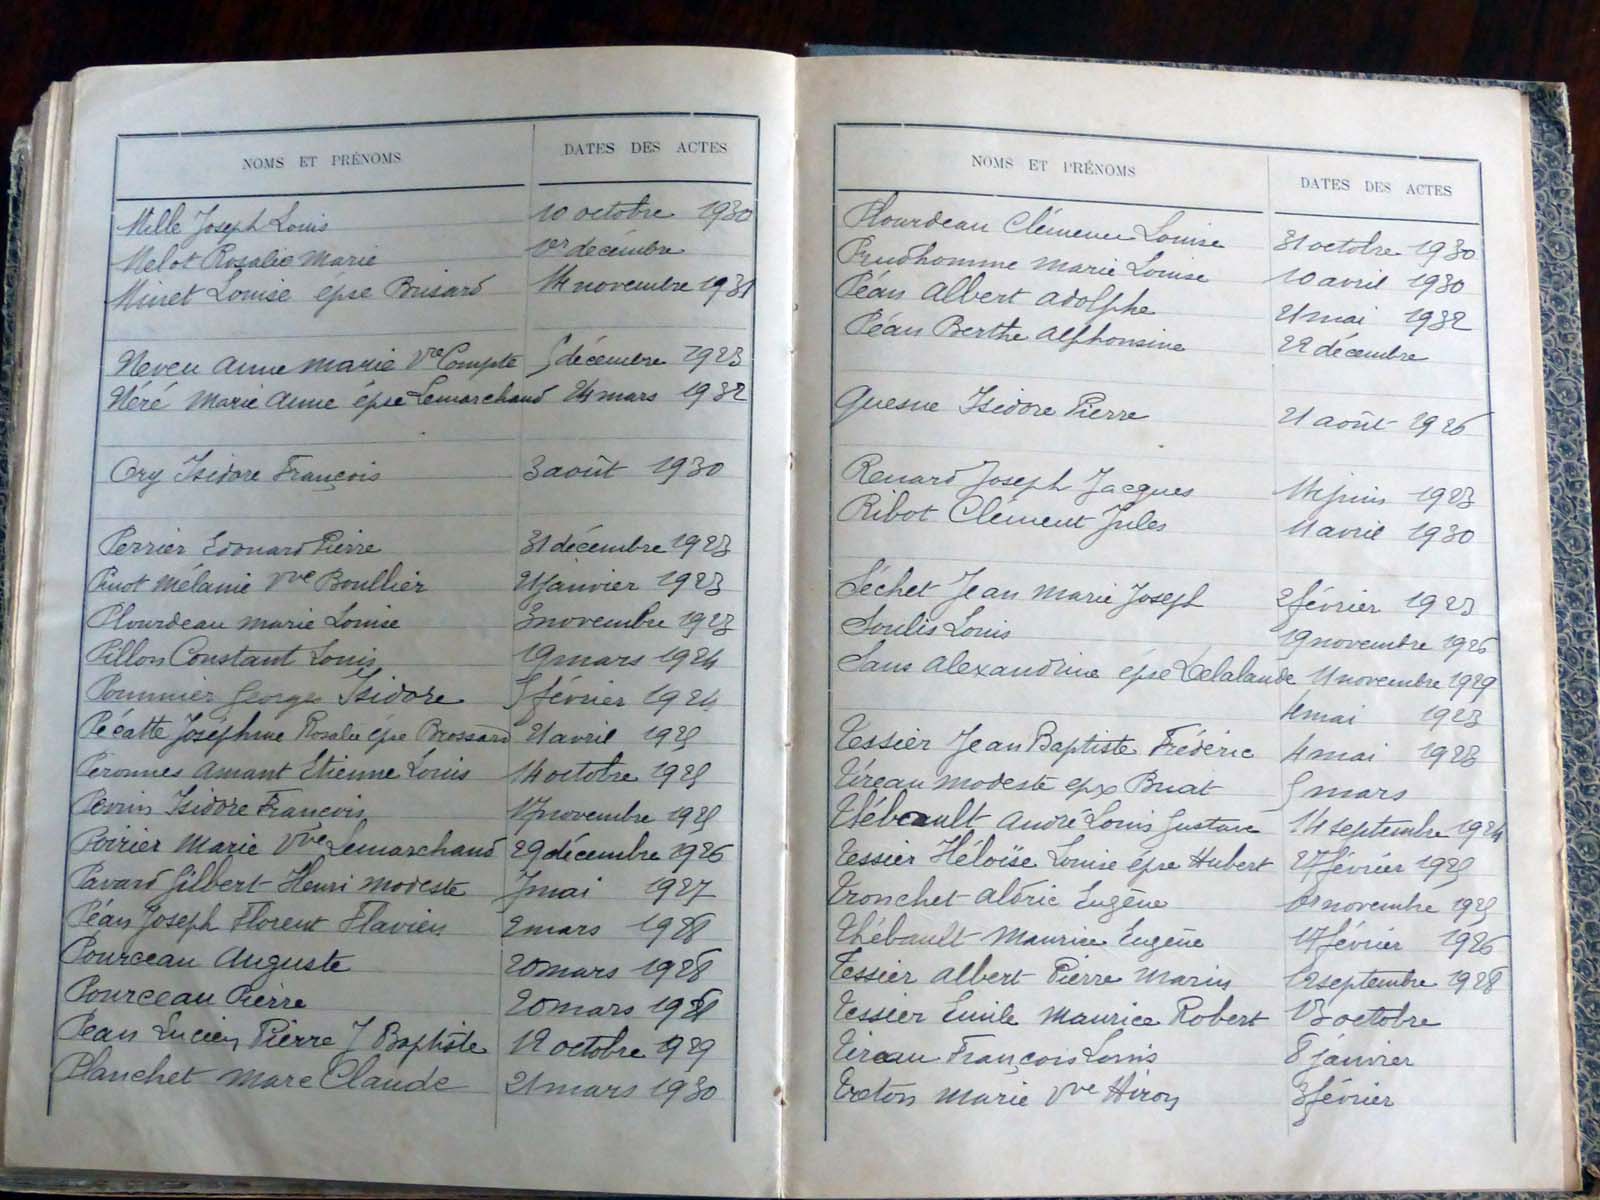 NOMS ET PRÉNOMS DATES DES ACTES
Mille Joseph Louis 10 octobre 1930
Melot Rosalie Marie 1er décembre
Minet Louise épse Brisard 14 novembre 1931
Neveu Anne Marie Vve Compte 5 décembre 1923
Néré Marie Anne épse Lemarchand 24 mars 1932
Ory Isidore François 3 août 1930
Perrier Edouard Pierre 31 décembre 1923
Pinot Mélanie Vve Boullier 21 janvier 1923
Plourdeau Marie Louise 3 novembre 1923
Pillon Constant Louis 19 mars 1924
Pommier Georges Isidore 5 février 1924
Pécatte Joséphine Rosalie épse Brossard 21 avril 1925
Peronnes Amant Etienne Louis 14 octobre 1925
Perrin Isidore François 17 novembre 1925
Poirier Marie Vve Lemarchand 29 décembre 1926
Pavard Gilbert Henri Modeste 7 mai 1927
Péan Joseph Florent Flavien 2 mars 1928
Pourceau Auguste 20 mars 1928
Pourceau Pierre 20 mars
Pean Lucien Pierre J Baptiste 12 octobre 1929
Planchet Marc Claude 21 mars 1930
NOMS ET PRÉNOMS DATES DES ACTES
Plourdeau Clémence Louise 31 octobre 1930
Prudhomme Marie Louise 10 avril 1930
Péan Albert Adolphe 21 mai 1932
Péan Berthe Alphonsine 22 décembre
Quesne Isidore Pierre 21 août 1926
Renard Joseph Jacques 14 juin 1923
Ribot Clément Jules 11 avril 1930
Séchet Jean Marie Joseph 2 février 1923
Soulis Louis 19 novembre 1926
Sans Alexandrine épse Delalande 11 novembre 1929
4 mai 1923
Tessier Jean Baptiste Frédéric 4 mai 1923
Tireau Modeste épx Buat 5 mars
Thébault André Louis Gustave 14 septembre 1924
Tessier Héloïse Louise épse Hubert 27 février 1925
Tronchet Aldric Eugène novembre 1925
Thébault Maurice Eugène 17 février 1926
Tessier Albert Pierre Marin 12 septembre 1928
Tessier Emile Maurice Robert 13 octobre
Tireau François Louis 8 janvier
Marie Vve Hiron 3 février